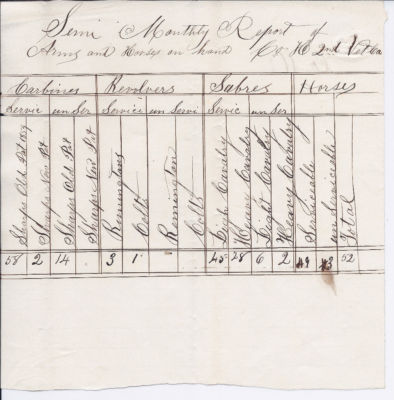 Semi Monthly Report of
Arms and Horses on hand Co H 2nd Vet Ca
Carbines Revolvers Sabres Horses
Servic un Ser Service un Servi Servic un Ser
Sharps Old Pat
Sharps New Pat
Sharps Old Pat
Sharps New Pat
Remington
Colts
Remington
Colts
Light Cavalry
Heavy Cavalry
Light Cavalry
Heavy Cavalry
Serviceable
un Serviceable
Total
58 2 14 3 1 45 28 6 2 49 43 52